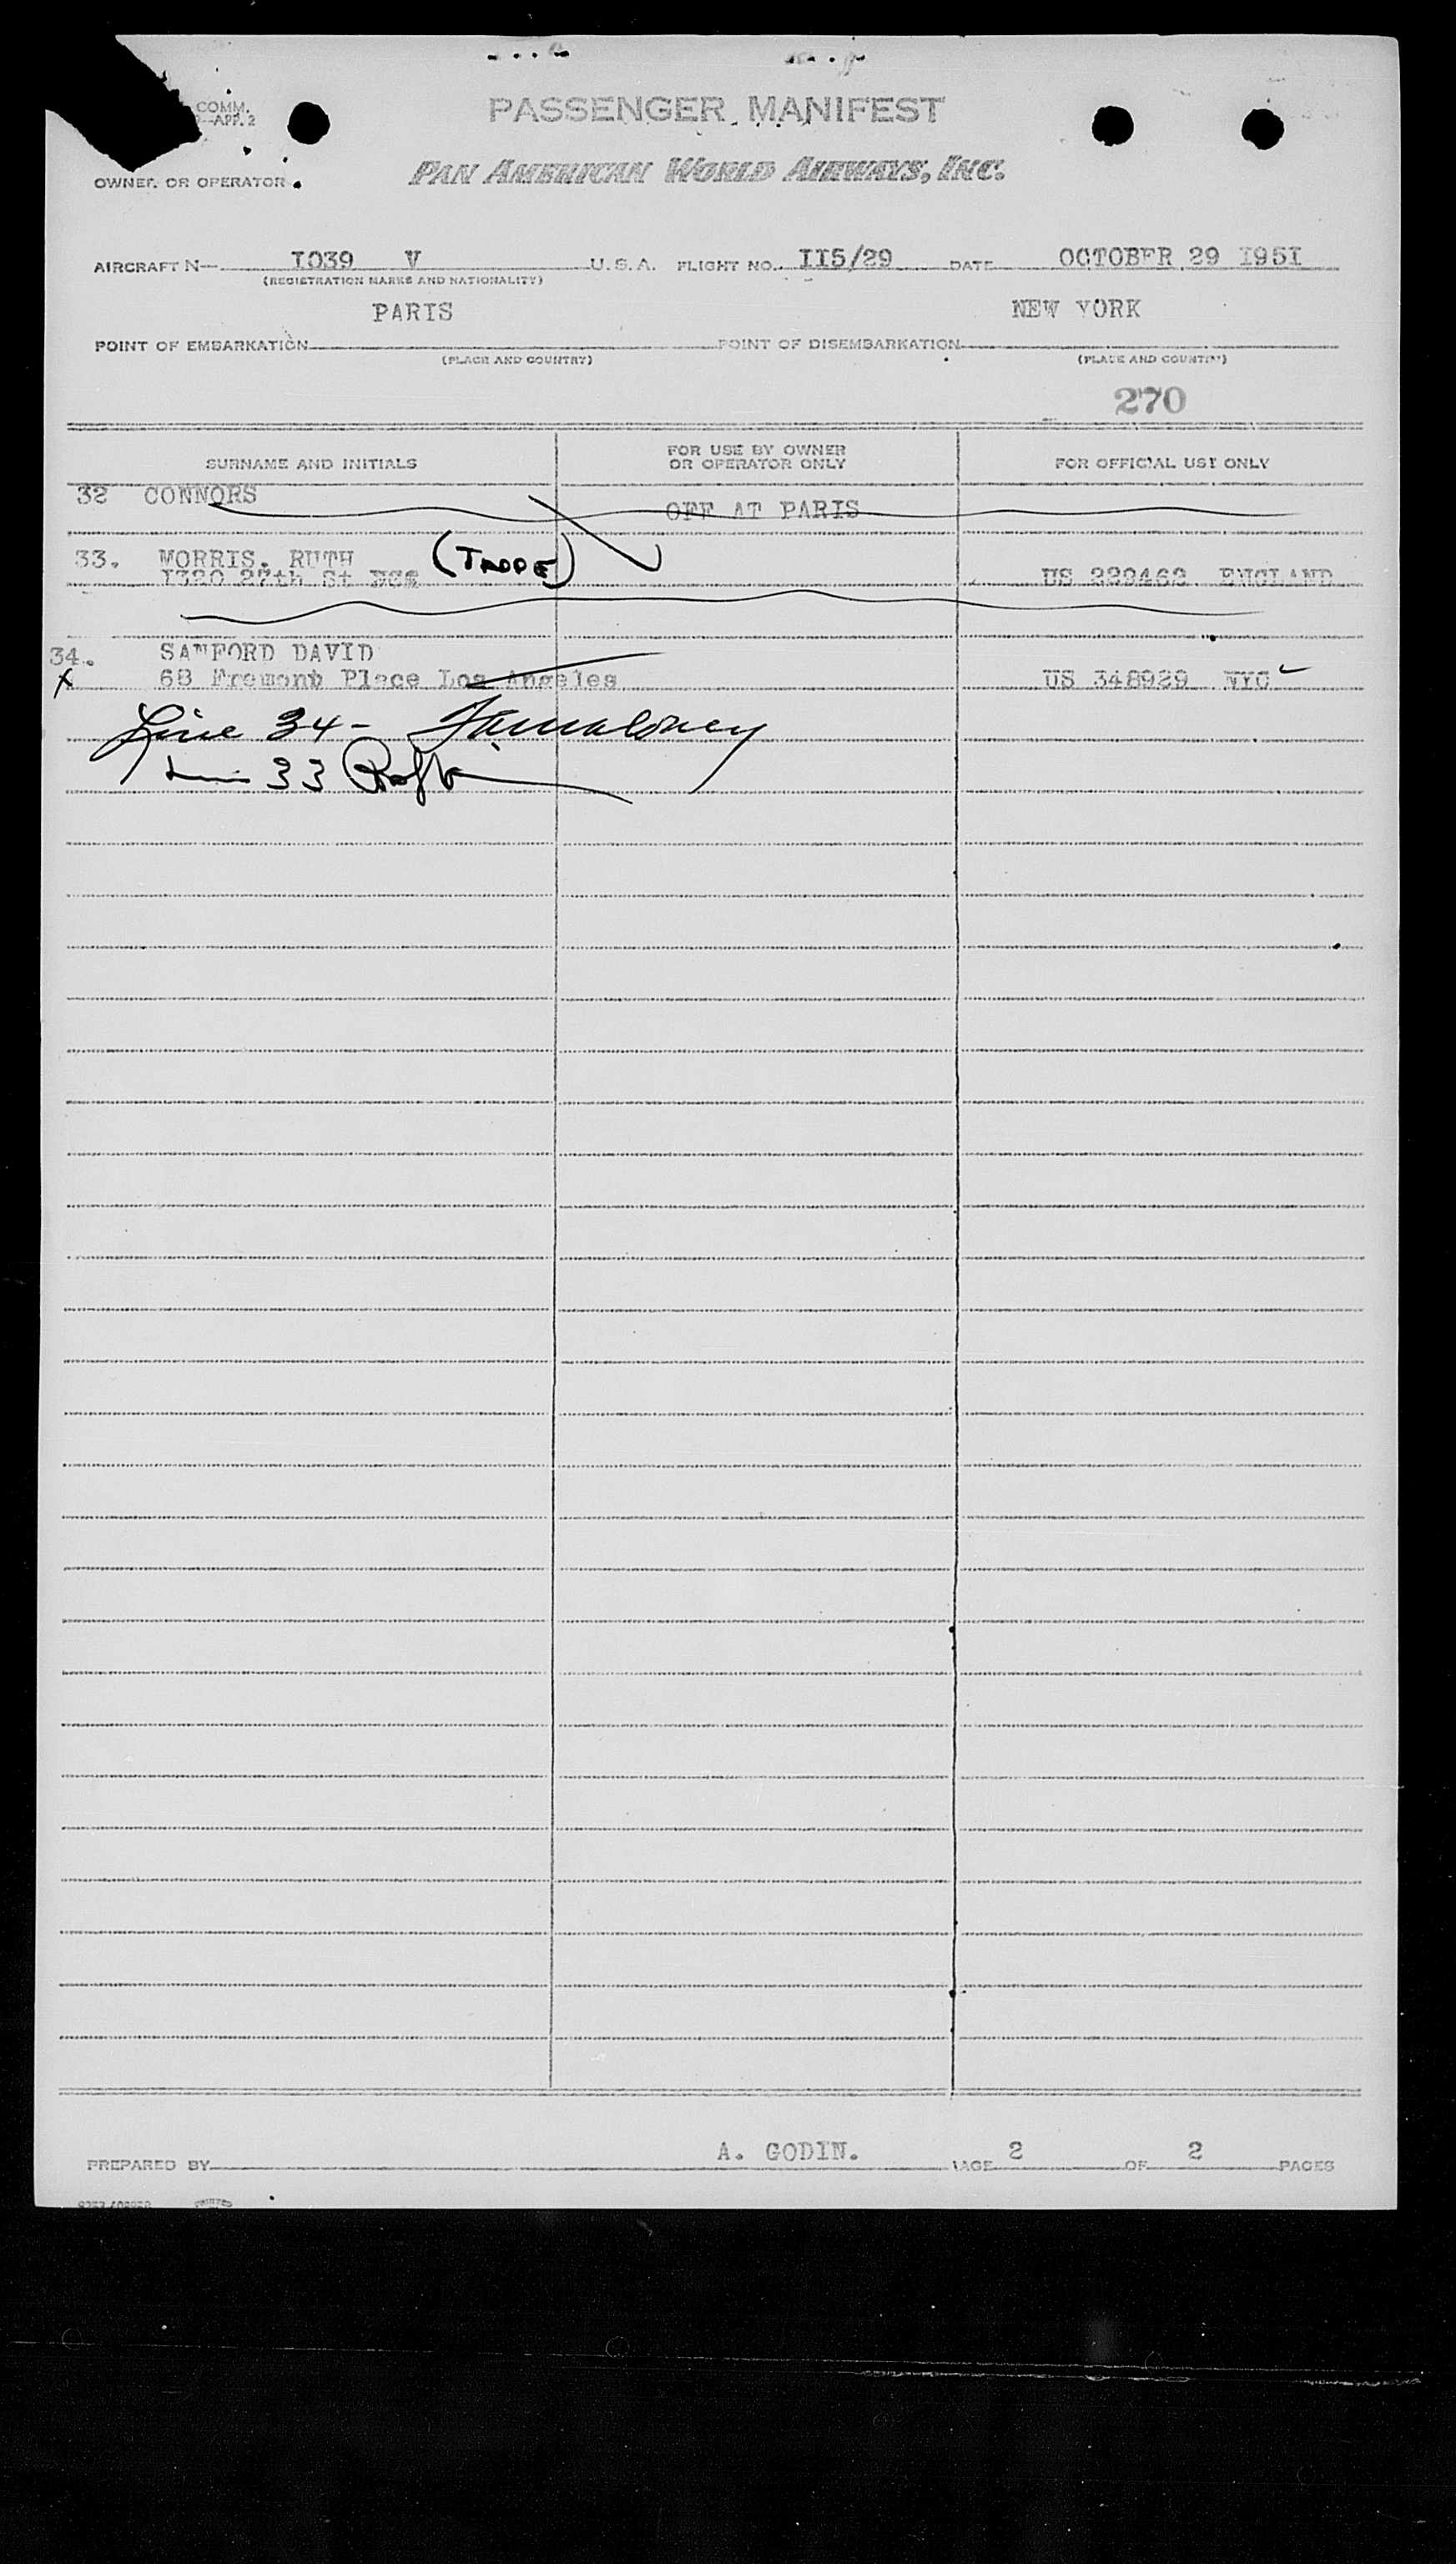 COMM.
APP. 2
PASSENGER MANIFEST
OWNER OR OPERATOR PAN AMERICAN WORLD AIRWAYS, INC.
AIRCRAFT N— I039 V U.S.A. FLIGHT NO. II5/29 DATE OCTOBER 29 I95I
(REGISTRATION MARKS AND NATIONALITY)
PARIS NEW YORK
POINT OF EMBARKATION POINT OF DISEMBARKATION
(PLACE AND COUNTRY) (PLACE AND COUNTRY)
270
SURNAME AND INITIALS FOR USE BY OWNER OR OPERATOR ONLY FOR OFFICIAL USE ONLY
32 CONNORS OFF AT PARIS
33. MORRIS, RUTH
I320 27th St US 229462 ENGLAND
34. SANFORD DAVID
X 68 Fremont Place Los Angeles US 348929 NYC ✓
Line 34-
33
PREPARED BY A. GODIN. PAGE 2 OF 2 PAGES